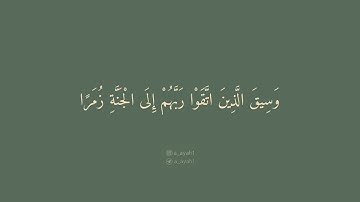 وَسِيقَ الَّذِينَ اتَّقَوْا رَبَّهُمْ إِلَى الْجَنَّةِ زُمَرًا
a_ayah1
a_ayah1